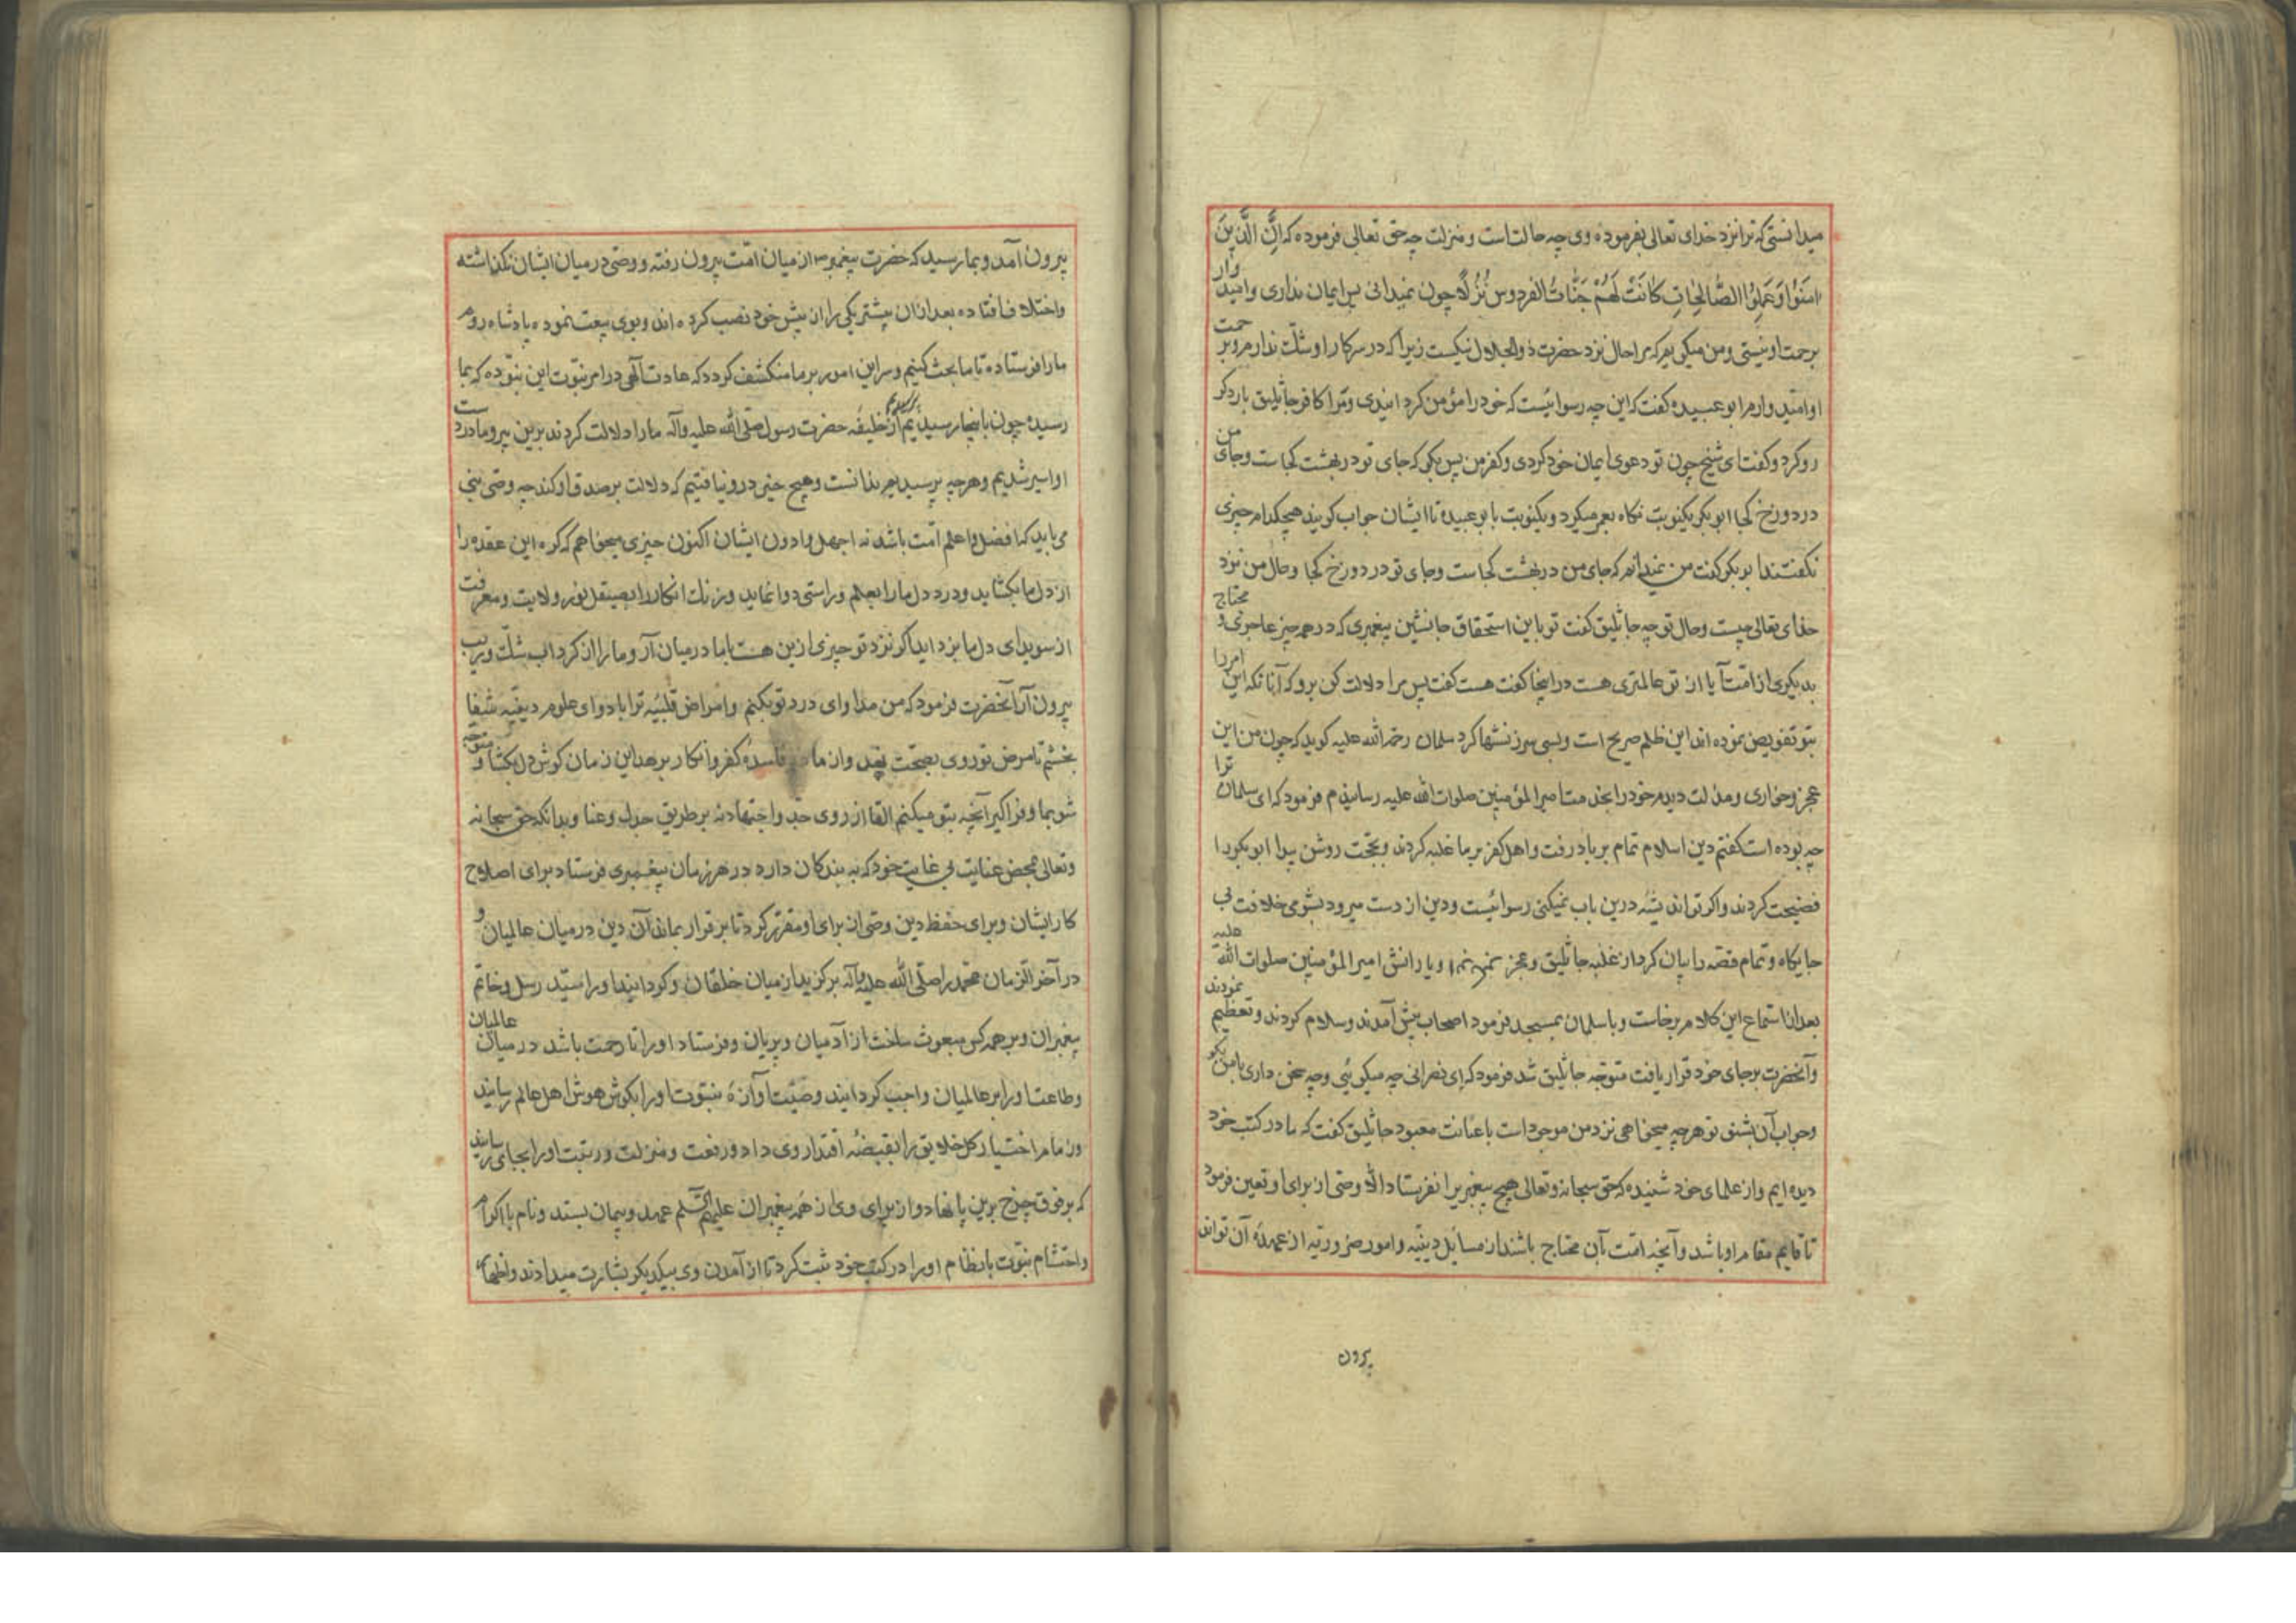 میدانستی که ترا نزد خدای تعالی بفرموده وی چه حالت است و منزلت چه حق تعالی فرموده که اِنَّ الَّذینَ
امَنُوا وَعَمِلُوا الصَّالِحَاتِ کَانَتْ لَهُمْ جَنَّاتُ الفردوس نُزُلًا چون نمیدانی پس ایمان نداری و امیدوار
برحمت او نیستی و من میکویم که مرا حال نزد حضرت ذو الجلال نیکست زیرا که در سر کار او شک ندارم و برحمت
او امیدوارم ابو عبیده کفت که این چه رسوائیست که خود را مؤمن کردانیدی و مرا کافر جاثلیق بار دکر
رو کرد و کفت ای شیخ چون تو دعوی ایمان خود کردی و کفر من پس بکو که جای تو در بهشت کجاست و جای من
در دوزخ کجا ابو بکر یکنوبت نکاه بعمر میکرد و یکنوبت بابو عبیده تا ایشان جواب کویند هیچکدام چیزی
نکفتند ابو بکر کفت من نمیدانم که جای من در بهشت کجاست و جای تو در دوزخ کجا و حال من نزد
خدای تعالی چیست و حال تو چه جاثلیق کفت تو باین استحقاق جانشین پیغمبری که در همه چیز عاجزی و محتاج
بدیکری از امت آیا از تو عالمتری هست در اینجا کفت هست کفت پس مرا دلالت کن برو که آنانکه این امر را
بتو تفویض نموده اند این ظلم صریح است و بسی سرزنشها کرد سلمان رحمة الله علیه کوید که چون من این
عجز و خواری و مذلت دیدم خود را بخدمت امیر المؤمنین صلوات الله علیه رسانیدم فرمود که ای سلمان ترا
چه بوده است کفتم دین اسلام تمام بر باد رفت و اهل کفر بر ما غلبه کردند و بحجت روشن پیدا ابو بکر را
فضیحت کردند و اکر تو اندیشه درین باب نمیکنی رسوائیست و دین از دست میرود بشومی خلافت بی
جایکاه و تمام قصه را بیان کرد از غلبه جاثلیق و عجز و یارانش امیر المؤمنین صلوات الله علیه
بعد از استماع این کلام برخاست و با سلمان بمسجد فرمود اصحاب پیش آمدند و سلام کردند و تعظیم نمودند
و آنحضرت بر جای خود قرار یافت متوجه جاثلیق شد فرمود که ای نصرانی چه میکوئی و چه سخن داری با من بکو
و جواب آن بشنو تو هر چه میخواهی نزد من موجود است باعانت معبود جاثلیق کفت که ما در کتب خود
دیده ایم و از علمای خود شنیده که حق سبحانه و تعالی هیچ پیغمبر برا نفرستاد الا وصی از برای او تعین فرمود
تا قایم مقام او باشد و آنچه امت بآن محتاج باشند از مسایل دینیه و امور ضروریه از عهده آن تواند
پیرون
پیرون آمد و بما رسید که حضرت پیغمبر از میان امت پیرون رفته و وصی در میان ایشان نکذاشته
و اختلاف افتاده بعد از ان پیشتر یکی را از پیش خود نصب کرده اند و بوی بیعت نموده پادشاه روم
ما را فرستاده تا ما بحث کنیم و سر این امور بر ما منکشف کردد که عادت آلهی در امر نبوت این نبوده که بما
رسیده چون باینجا رسیدیم از خلیفه حضرت رسول صلی الله علیه و آله پرسیدیم ما را دلالت کردند برین پیر و ما در دست
او اسیر شدیم و هر چه پرسیدیم ندانست و هیچ چیز درو نیافتیم که دلالت بر صدق او کند چه وصی نبی
می باید که افضل و اعلم امت باشد نه اجهل و ادون ایشان اکنون چیزی میخواهم که کره این عقده را
از دل ما بکشاید و درد دل ما را بعلم و راستی دوا نماید و زنک انکار را بصیقل نور ولایت و معرفت
از سویدای دل ما بزداید اکر نزد تو چیزی ازین هست با ما در میان آر و ما را از کرداب شک و ریب
پیرون آر آنحضرت فرمود که من مداوای درد تو بکنم و امراض قلبیه ترا با دوای علوم دینیه شفا
بخشم تا مرض تو روی بصحت نهد و از ماده فاسده کفر و انکار برهد این زمان کوش دل بکشا و متوجه
شو بما و فرا کیر آنچه بتو میکنم القا از روی جد و اجتهاد نه بر طریق جدل و عنا و بدانکه حق سبحانه
و تعالی بمحض عنایت بی غایت خود که به بندکان دارد در هر زمان پیغمبری فرستاد برای اصلاح
کار ایشان و برای حفظ دین وصی از برای او مقرر کرد تا بر قرار بماند آن دین در میان عالمیان و
در آخر الزمان محمد را صلی الله علیه و آله برکزید از میان خلقان و کردانید او را سید رسل و خاتم
پیغمبران و بر همه کس مبعوث ساخت از آدمیان و پریان و فرستاد او را تا رحمت باشد در میان عالمیان
و طاعت او را بر عالمیان واجب کردانید و صیت آوازهٔ نبوت او را بکوش هوش اهل عالم رسانید
و زمام اختیار کل خلایق را بقبضهٔ اقتدار وی داد و رفعت و منزلت و رتبت او را بجای رسانید
که بر فوق چرخ برین پا نهاد و از برای وی از همه پیغمبران علیهم السلم عهد و پیمان بستد و نام با اکرام
و احتشام نبوت با نظام او را در کتب خود ثبت کرد تا از آمدن وی بیکدیکر بشارت میدادند و اظهار